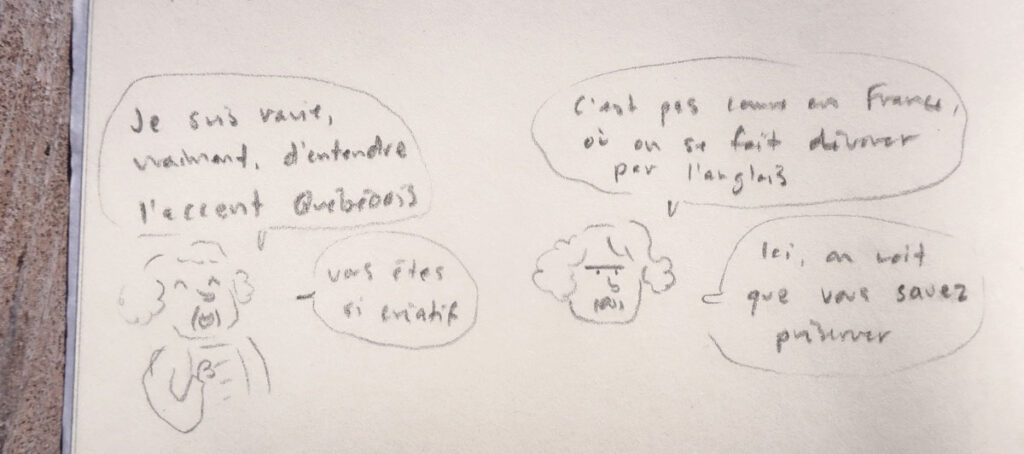 Je suis ravie,
vraiment, d'entendre
l'accent Québécois
vous êtes
si créatif
C'est pas comme en France,
où on se fait dévorer
par l'anglais
Ici, on voit
que vous savez
préserver